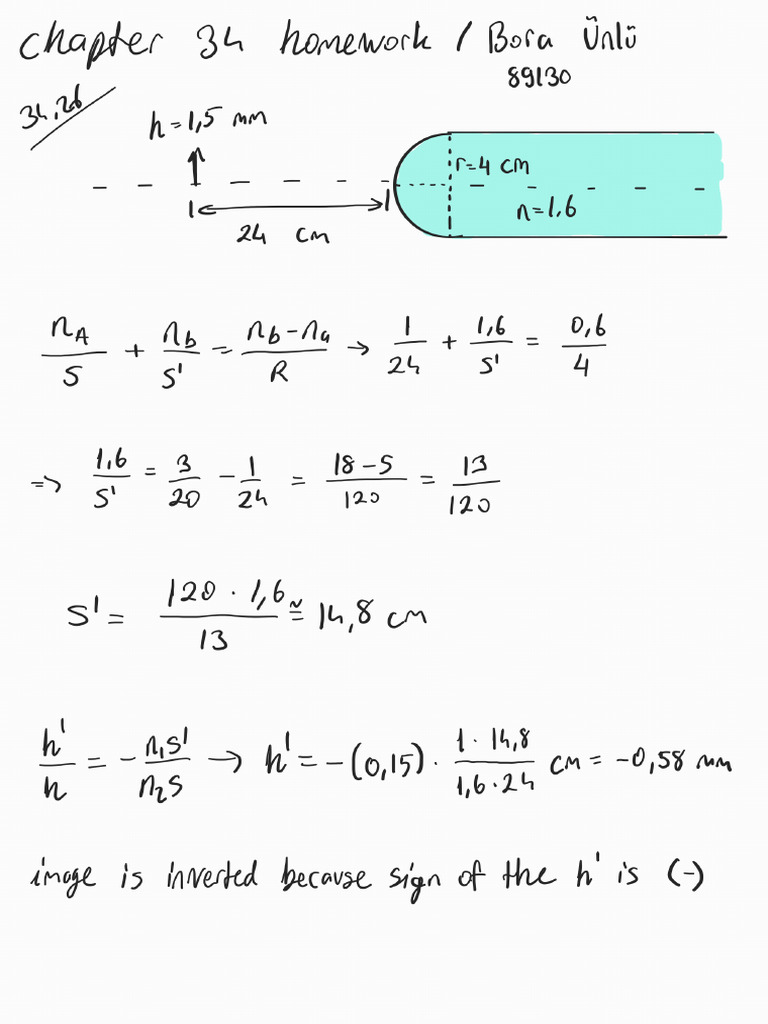 chapter 34 homework / Bora Ünlü
89130
34,26
h=1,5 mm
r=4 cm
n=1,6
24 cm
nA/S + nb/S' = nb-na/R → 1/24 + 1,6/S' = 0,6/4
=> 1,6/S' = 3/20 - 1/24 = 18-5/120 = 13/120
S' = 120 · 1,6/13 ≅ 14,8 cm
h'/h = - n1S'/n2S → h' = -(0,15) · 1 · 14,8/1,6 · 24 cm = -0,58 mm
image is inverted because sign of the h' is (-)